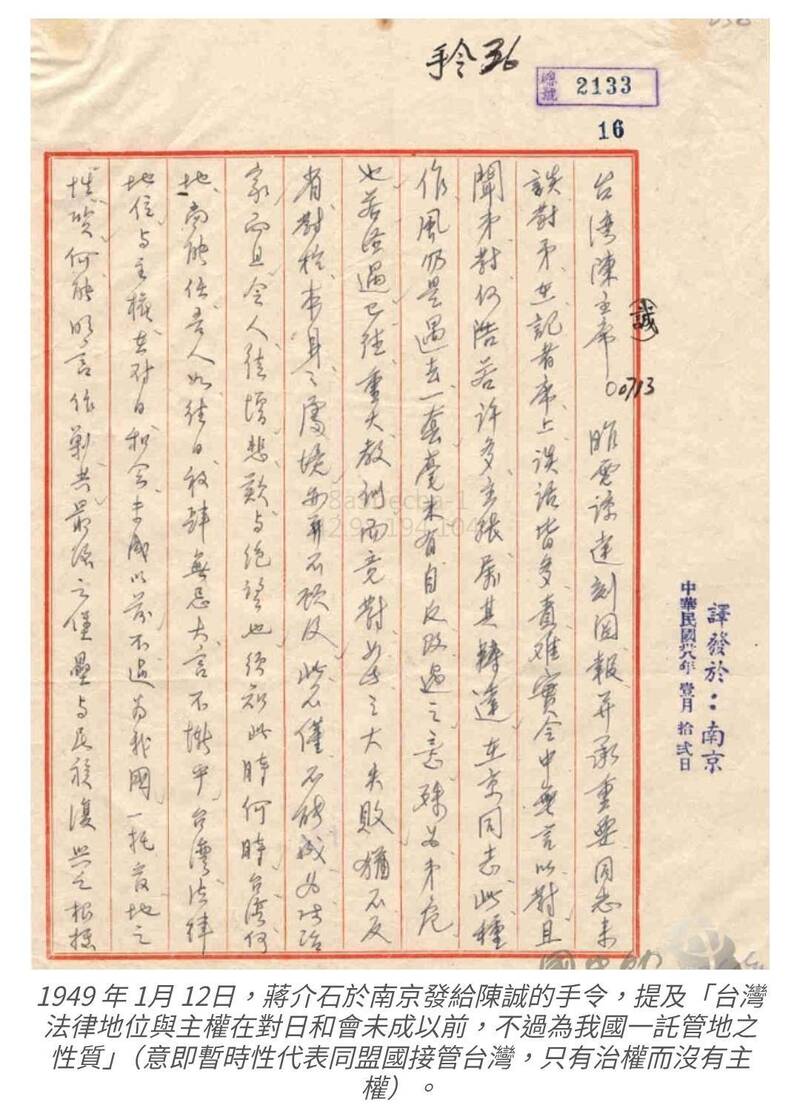 手令36
總號 2133
16
台灣陳主席(誠) 0713 昨電諒達刻閱報并承重要同志來
談對弟在記者席上談話皆多責難實令中無言以對且
聞弟對何浩若許多主張屬其轉達在京同志此種
作風仍是過去一套毫未有自反改過之意殊為弟危
也若經過已往重大教訓而竟對如此之大失敗猶不反
省對於本身之處境亦再不顧及此不僅不能成為政治
家而且令人徒增悲歎與絕望也須知此時何時台灣何
地尚能任吾人如往日放肆無忌大言不慚乎台灣法律
地位与主權在對日和會未成以前不過為我國一托管地之
性質何能明言作剿共最後之堡壘与民族復興之根據
譯發於：南京
中華民國卅八年 壹月 拾弍日
1949 年 1月 12日，蔣介石於南京發給陳誠的手令，提及「台灣
法律地位與主權在對日和會未成以前，不過為我國一託管地之
性質」（意即暫時性代表同盟國接管台灣，只有治權而沒有主
權）。